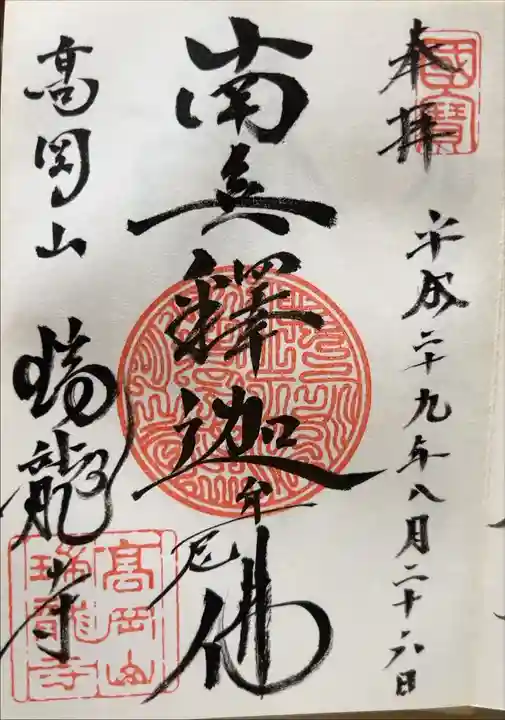 奉拝
國寶
平成二十九年八月二十六日
南無釋迦牟尼佛
高岡山
瑞龍寺
高岡山
瑞龍寺